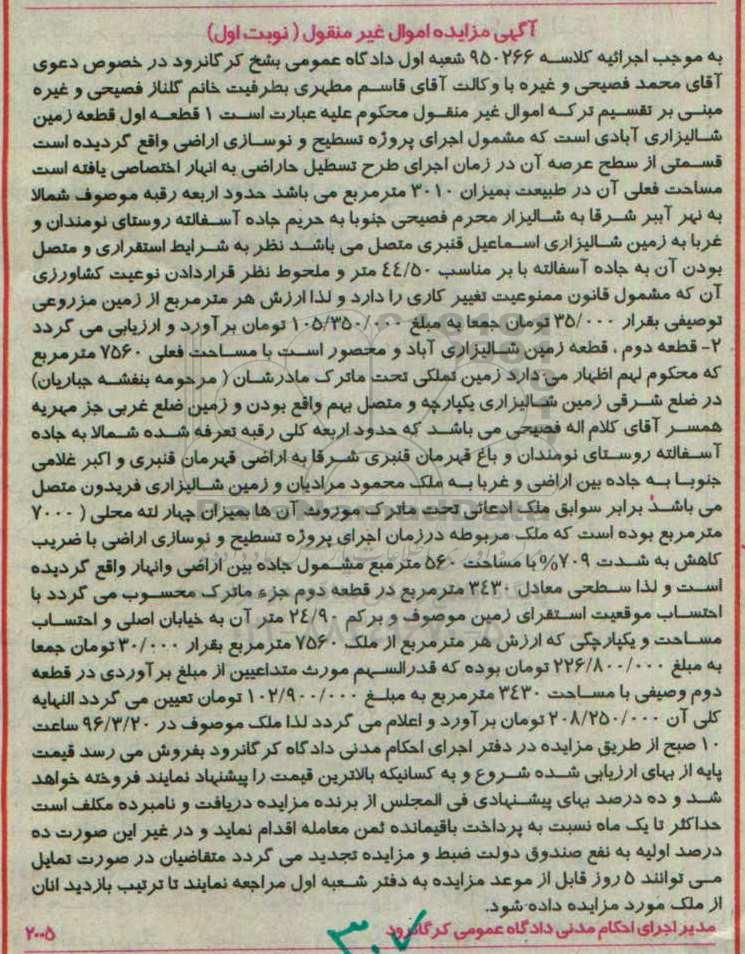 آگهی مزایده اموال غیر منقول ( نوبت اول)
به موجب اجرائیه کلاسه ۹۵۰۲۶۶ شعبه اول دادگاه عمومی بخش کرگانرود در خصوص دعوی
آقای محمد فصیحی و غیره با وکالت آقای قاسم مطهری بطرفیت خانم گلناز فصیحی و غیره
مبنی بر تقسیم ترکه اموال غیر منقول محکوم علیه عبارت است ۱ قطعه اول قطعه زمین
شالیزاری آبادی است که مشمول اجرای پروژه تسطیح و نوسازی اراضی واقع گردیده است
قسمتی از سطح عرصه آن در زمان اجرای طرح تسطیل حاراضی به انهار اختصاصی یافته است
مساحت فعلی آن در طبیعت بمیزان ۳۰۱۰ مترمربع می باشد حدود اربعه رقبه موصوف شمالا
به نهر آببر شرقا به شالیزار محرم فصیحی جنوبا به حریم جاده آسفالته روستای نومندان و
غربا به زمین شالیزاری اسماعیل قنبری متصل می باشد نظر به شرایط استقراری و متصل
بودن آن به جاده آسفالته با بر مناسب ٤٤/۵۰ متر و ملحوظ نظر قراردادن نوعیت کشاورزی
آن که مشمول قانون ممنوعیت تغییر کاری را دارد و لذا ارزش هر مترمربع از زمین مزروعی
توصیفی بقرار ۳۵/۰۰۰ تومان جمعا به مبلغ ۱۰۵/۳۵۰/۰۰۰ تومان برآورد و ارزیابی می گردد
۲- قطعه دوم ، قطعه زمین شالیزاری آباد و محصور است با مساحت فعلی ۷۵۶۰ مترمربع
که محکوم لهم اظهار می دارد زمین تملکی تحت ماترک مادرشان ( مرحومه بنفشه جباریان)
در ضلع شرقی زمین شالیزاری یکپارچه و متصل بهم واقع بودن و زمین ضلع غربی جز مهریه
همسر آقای کلام اله فصیحی می باشد که حدود اربعه کلی رقبه تعرفه شده شمالا به جاده
آسفالته روستای نومندان و باغ قهرمان قنبری شرقا به اراضی قهرمان قنبری و اکبر غلامی
جنوبا به جاده بین اراضی و غربا به ملک محمود مرادیان و زمین شالیزاری فریدون متصل
می باشد برابر سوابق ملک ادعائی تحت ماترک موروث آن ها بمیزان چهار لته محلی ( ۷۰۰۰
مترمربع بوده است که ملک مربوطه درزمان اجرای پروژه تسطیح و نوسازی اراضی با ضریب
کاهش به شدت ۷۰۹% با مساحت ۵۶۰ مترمبع مشمول جاده بین اراضی وانهار واقع گردیده
است و لذا سطحی معادل ۳٤۳۰ مترمربع در قطعه دوم جزء ماترک محسوب می گردد با
احتساب موقعیت استقرای زمین موصوف و برکم ۲٤/۹۰ متر آن به خیابان اصلی و احتساب
مساحت و یکپارچگی که ارزش هر مترمربع از ملک ۷۵۶۰ مترمربع بقرار ۳۰/۰۰۰ تومان جمعا
به مبلغ ۲۲۶/۸۰۰/۰۰۰ تومان بوده که قدرالسهم مورث متداعیین از مبلغ برآوردی در قطعه
دوم وصیفی با مساحت ۳٤۳۰ مترمربع به مبلغ ۱۰۲/۹۰۰/۰۰۰ تومان تعیین می گردد النهایه
کلی آن ۲۰۸/۲۵۰/۰۰۰ تومان برآورد و اعلام می گردد لذا ملک موصوف در ۹۶/۳/۲۰ ساعت
۱۰ صبح از طریق مزایده در دفتر اجرای احکام مدنی دادگاه کرگانرود بفروش می رسد قیمت
پایه از بهای ارزیابی شده شروع و به کسانیکه بالاترین قیمت را پیشنهاد نمایند فروخته خواهد
شد و ده درصد بهای پیشنهادی فی المجلس از برنده مزایده دریافت و نامبرده مکلف است
حداکثر تا یک ماه نسبت به پرداخت باقیمانده ثمن معامله اقدام نماید و در غیر این صورت ده
درصد اولیه به نفع صندوق دولت ضبط و مزایده تجدید می گردد متقاضیان در صورت تمایل
می توانند ۵ روز قابل از موعد مزایده به دفتر شعبه اول مراجعه نمایند تا ترتیب بازدید انان
از ملک مورد مزایده داده شود.
مدیر اجرای احکام مدنی دادگاه عمومی کرگانرود ۲۰۰۵
۳۰۷